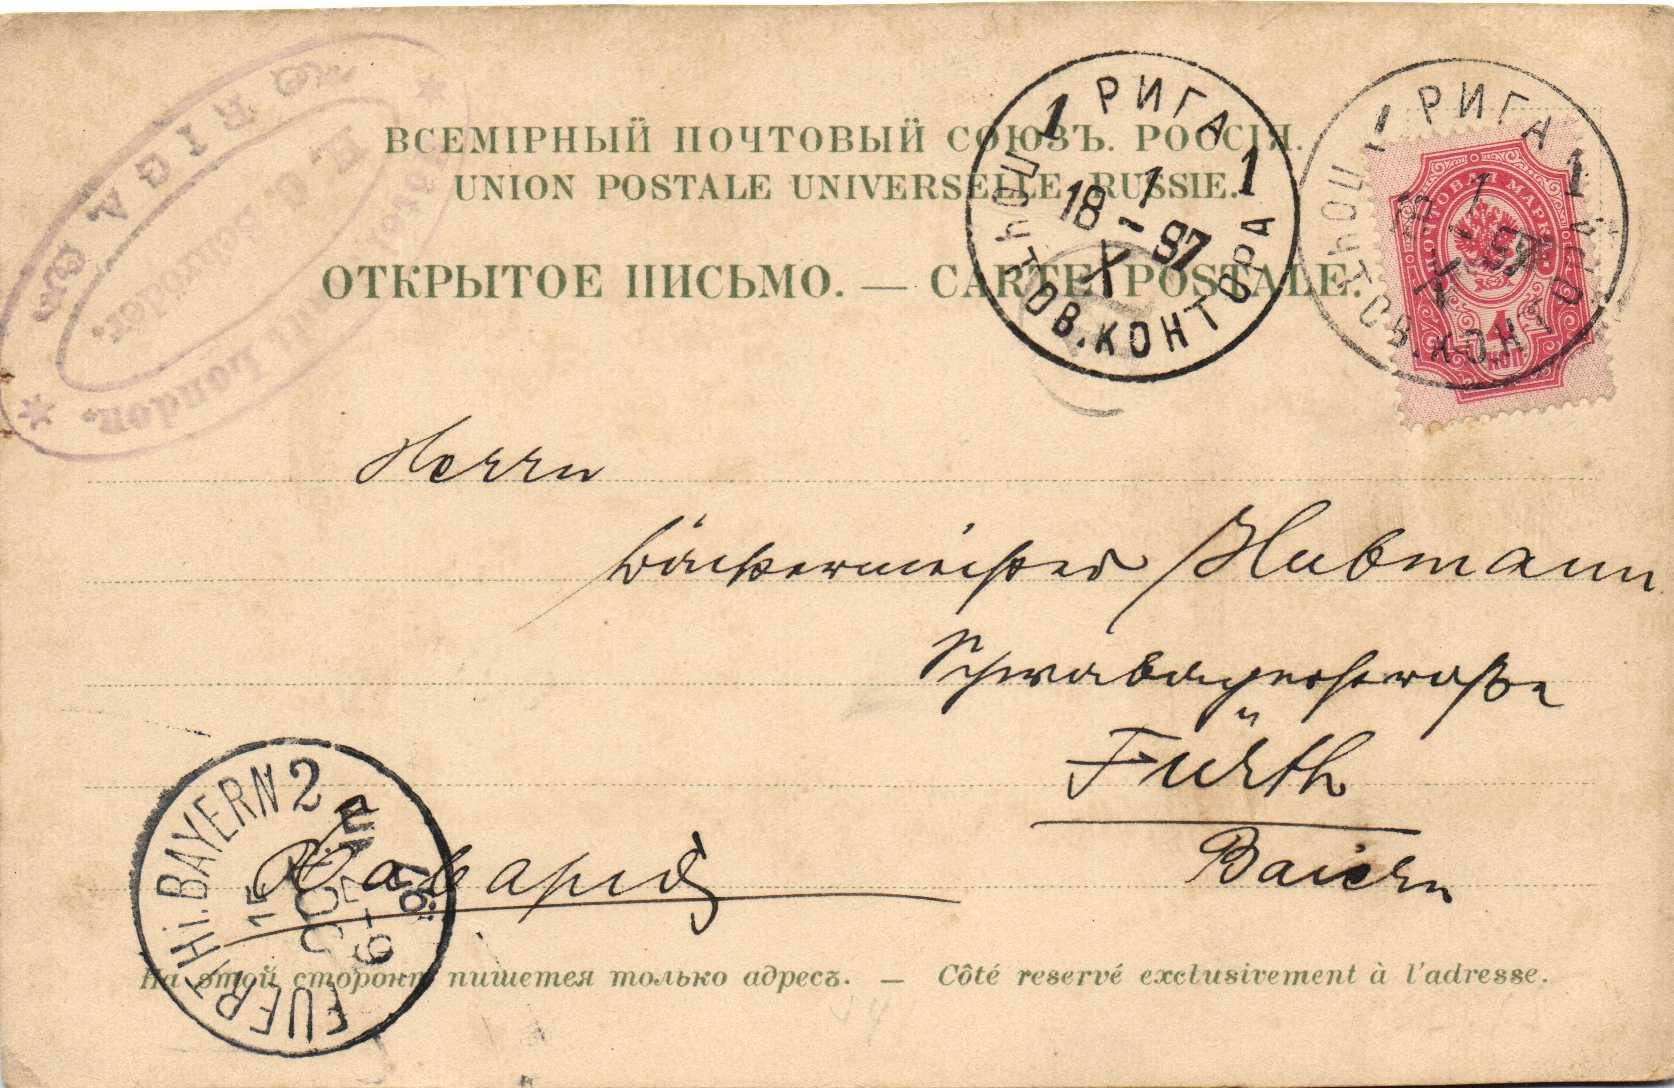 ВСЕМІРНЫЙ ПОЧТОВЫЙ СОЮЗЪ. РОССІЯ.
UNION POSTALE UNIVERSELLE. RUSSIE.
ОТКРЫТОЕ ПИСЬМО. — CARTE POSTALE.
RIGA
London.
1 РИГА 1
18 1 X - 97
ПОЧТОВ. КОНТОРА
1 РИГА 1
18 1 X - 97
ПОЧТОВ. КОНТОРА
ПОЧТОВАЯ МАРКА
4
КОП.
Herrn
Bäckermeister Hubmann
Schwabacherstraße
Fürth
Baiern
Баварія
FUERTH i. BAYERN 2
15 OCT
На этой сторонѣ пишется только адресъ. — Côté reservé exclusivement à l'adresse.